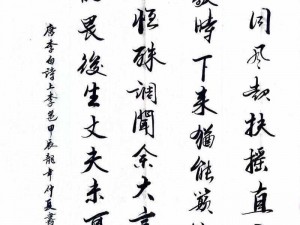 同风起扶摇直
歇時下来猶能簸
恒殊調聞余大言
能畏後生丈夫未可
唐李白詩上李邕甲辰龍年仲夏書